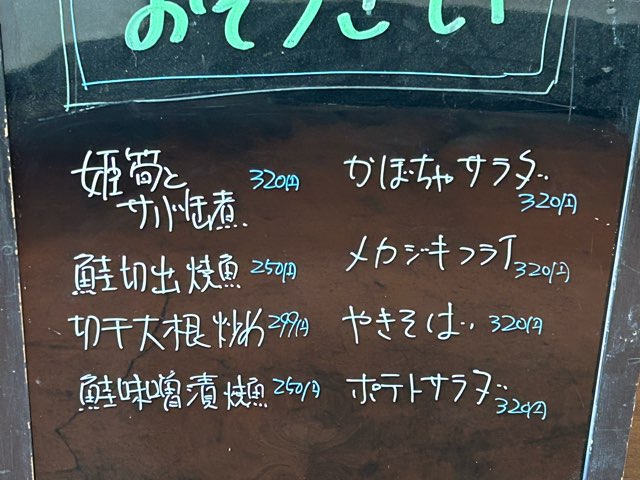 おそうざい
姫筍と
サバ缶煮 320円
鮭切出焼魚 250円
切干大根炒め 299円
鮭味噌漬焼魚 250円
かぼちゃサラダ
320円
メカジキフライ 320円
やきそば 320円
ポテトサラダ 320円